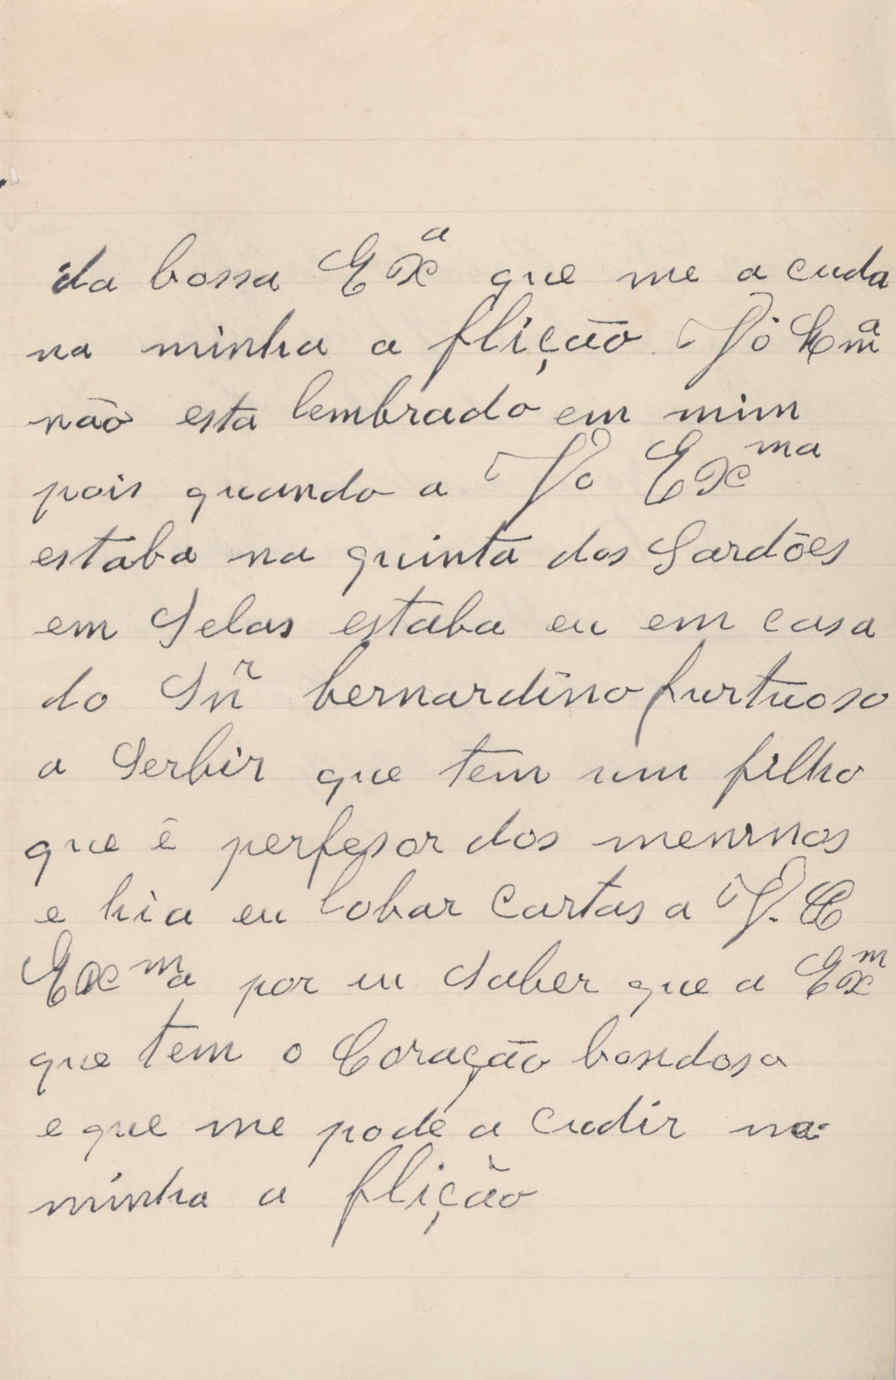 da bossa Exª que me a cuda
na minha a flição Vô Emª
não esta lembrado em mim
pois quando a Vo Exma
estaba na quinta dos Sardões
em Selas estaba eu em casa
do Snr bernardino furtuoso
a Serbir que tem um filho
que ê perfesor dos meninos
e hia eu lobar Cartas a V. E
Exma por eu Saber que a Exm
que tem o Coração bondoso
e que me pode a Cudir na
minha a flição